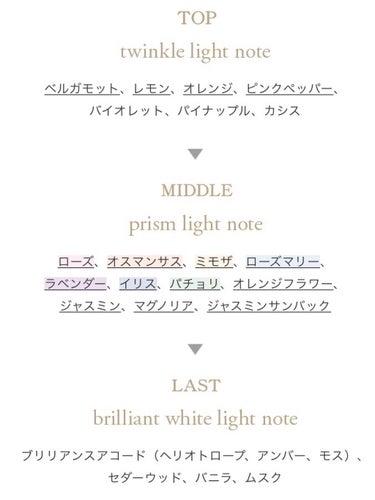 TOP
twinkle light note
ベルガモット、レモン、オレンジ、ピンクペッパー、
バイオレット、パイナップル、カシス
MIDDLE
prism light note
ローズ、オスマンサス、ミモザ、ローズマリー、
ラベンダー、イリス、パチョリ、オレンジフラワー、
ジャスミン、マグノリア、ジャスミンサンバック
LAST
brilliant white light note
ブリリアンスアコード（ヘリオトロープ、アンバー、モス）、
セダーウッド、バニラ、ムスク